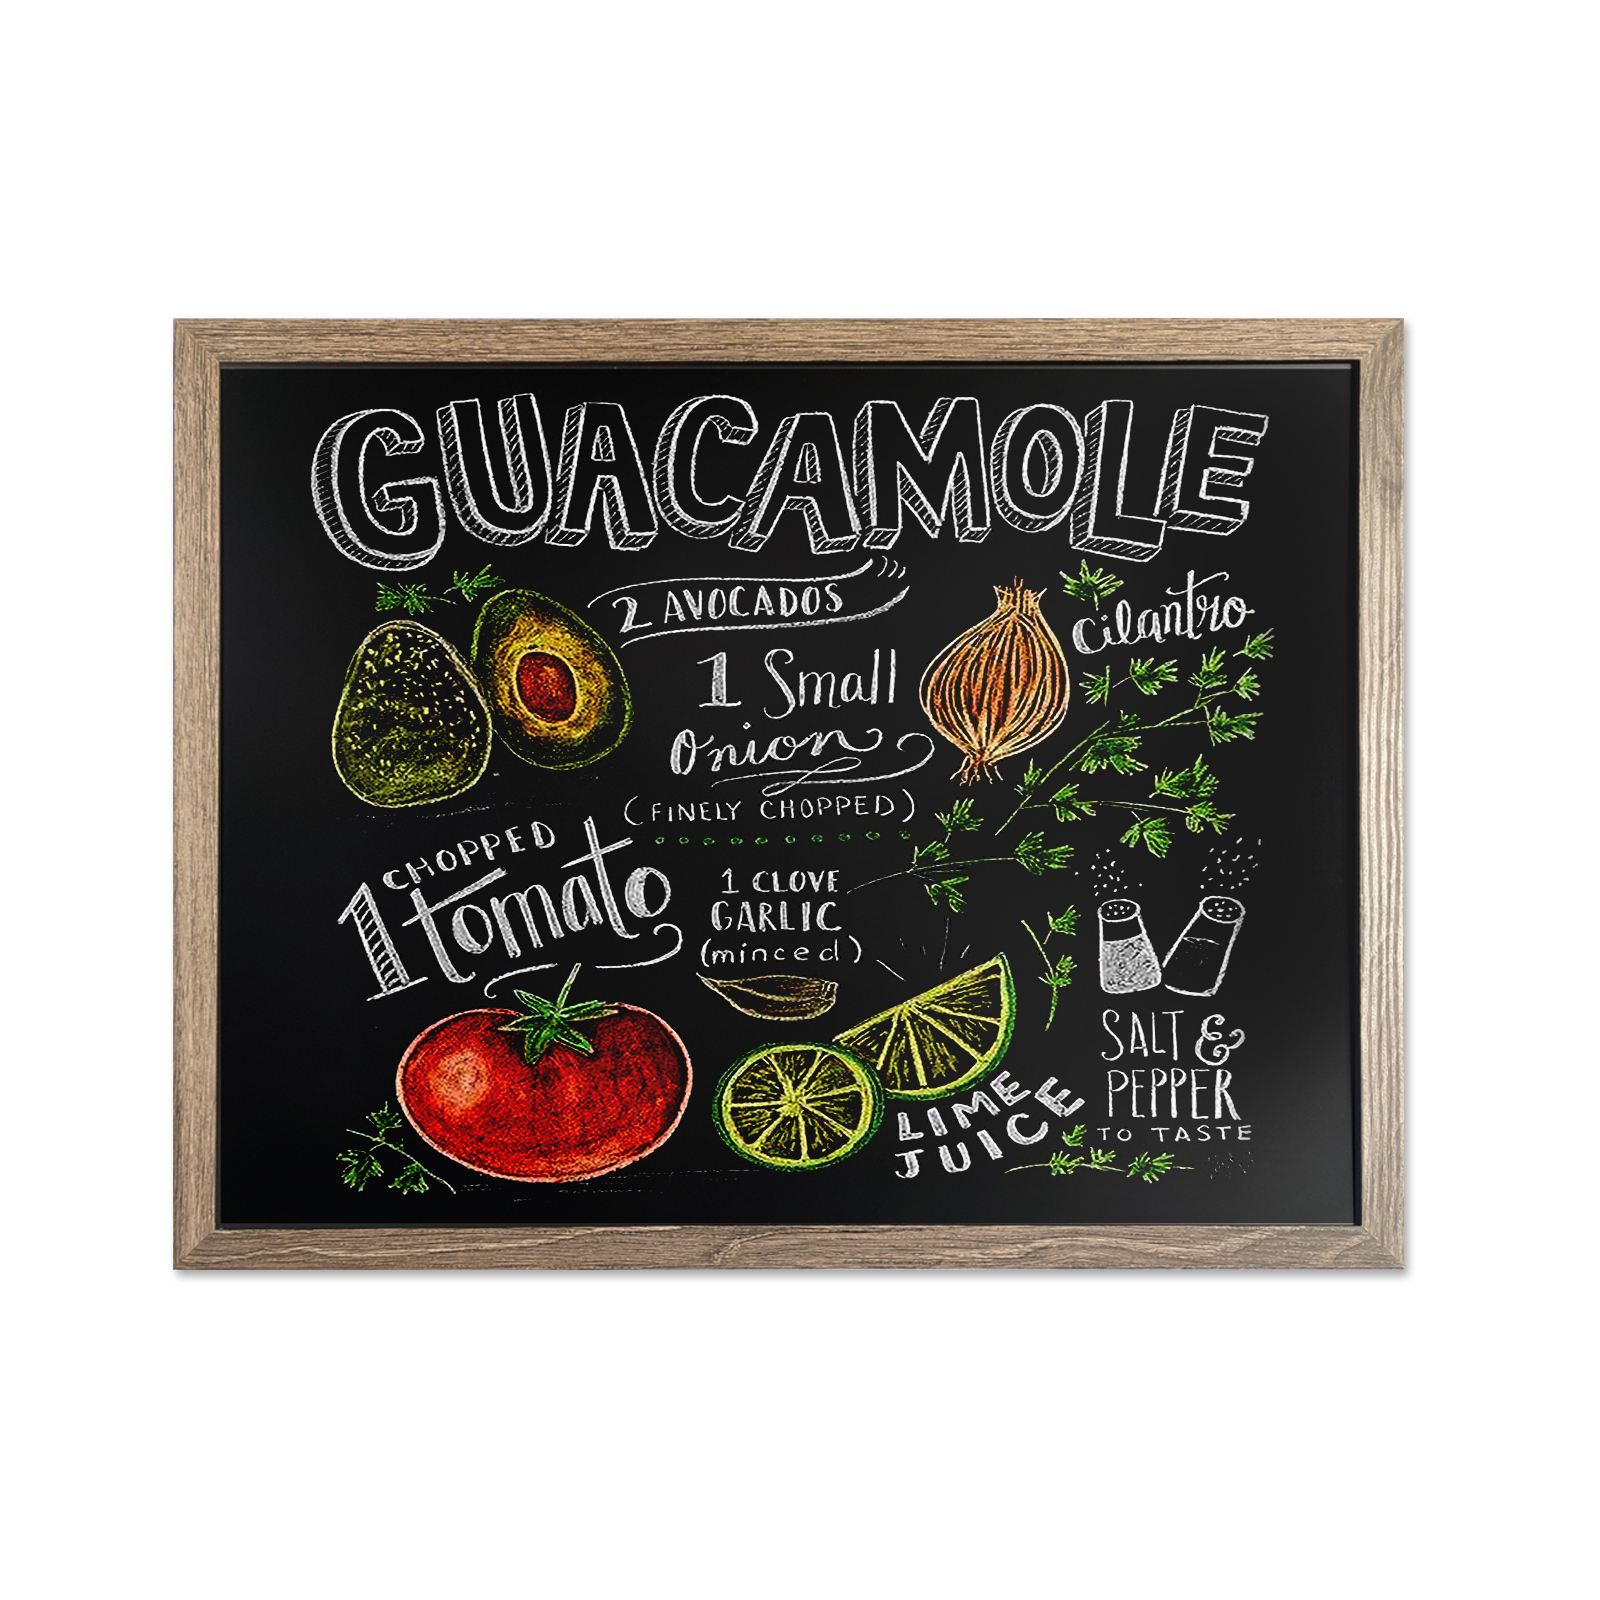 GUACAMOLE
2 AVOCADOS
cilantro
1 Small
Onion
(FINELY CHOPPED)
CHOPPED
1 tomato
1 CLOVE
GARLIC
(minced)
SALT &
PEPPER
TO TASTE
LIME
JUICE